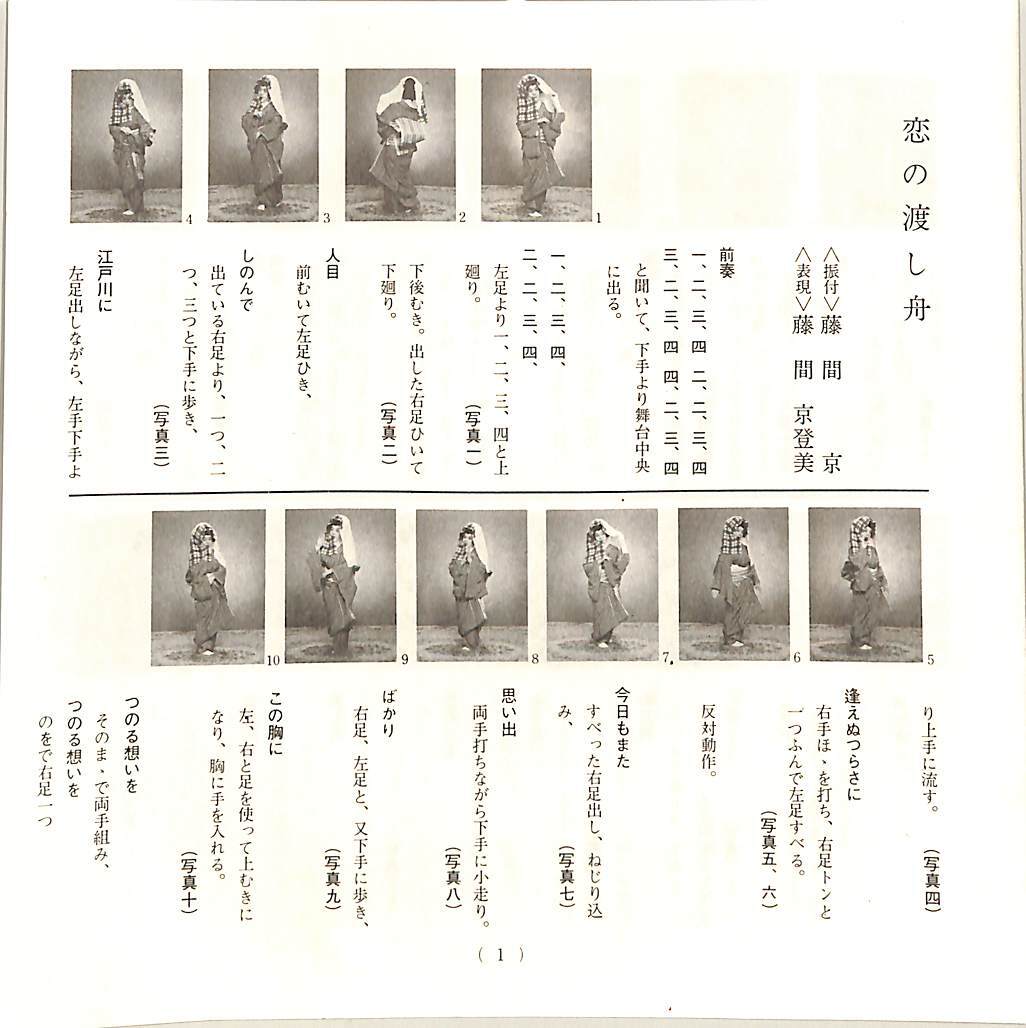 恋の渡し舟
＜振付＞藤間 京
＜表現＞藤間 京登美
1
2
3
4
前奏
一、二、三、四 二、二、三、四
三、二、三、四 四、二、三、四
と聞いて、下手より舞台中央
に出る。
一、二、三、四、
二、二、三、四、
左足より一、二、三、四と上
廻り。 （写真一）
下後むき。出した右足ひいて
下廻り。 （写真二）
人目
前むいて左足ひき、
しのんで
出ている右足より、一つ、二
つ、三つと下手に歩き、
（写真三）
江戸川に
左足出しながら、左手下手よ
5
6
7
8
9
10
り上手に流す。 （写真四）
逢えぬつらさに
右手ほゝを打ち、右足トンと
一つふんで左足すべる。
（写真五、六）
反対動作。
今日もまた
すべった右足出し、ねじり込
み、 （写真七）
思い出
両手打ちながら下手に小走り。
（写真八）
ばかり
右足、左足と、又下手に歩き、
（写真九）
この胸に
左、右と足を使って上むきに
なり、胸に手を入れる。
（写真十）
つのる想いを
そのまゝで両手組み、
つのる想いを
のをで右足一つ
（1）